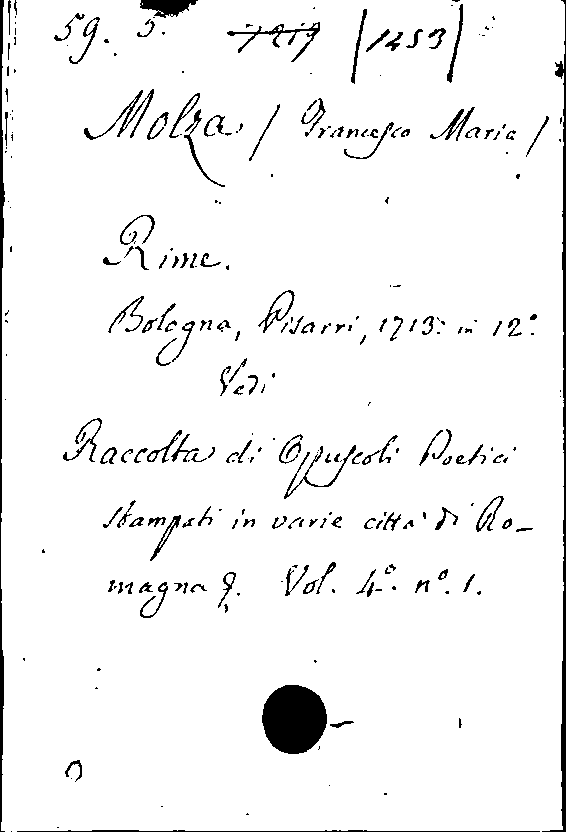 59. 5. 1219 |1253|
Molza / Francesco Maria /
Rime.
Bologna, Pisarri, 1713: in 12°.
Vedi
Raccolta di Opuscoli Poetici
stampati in varie città di Ro-
magna &. Vol. 4°. n°. 1.